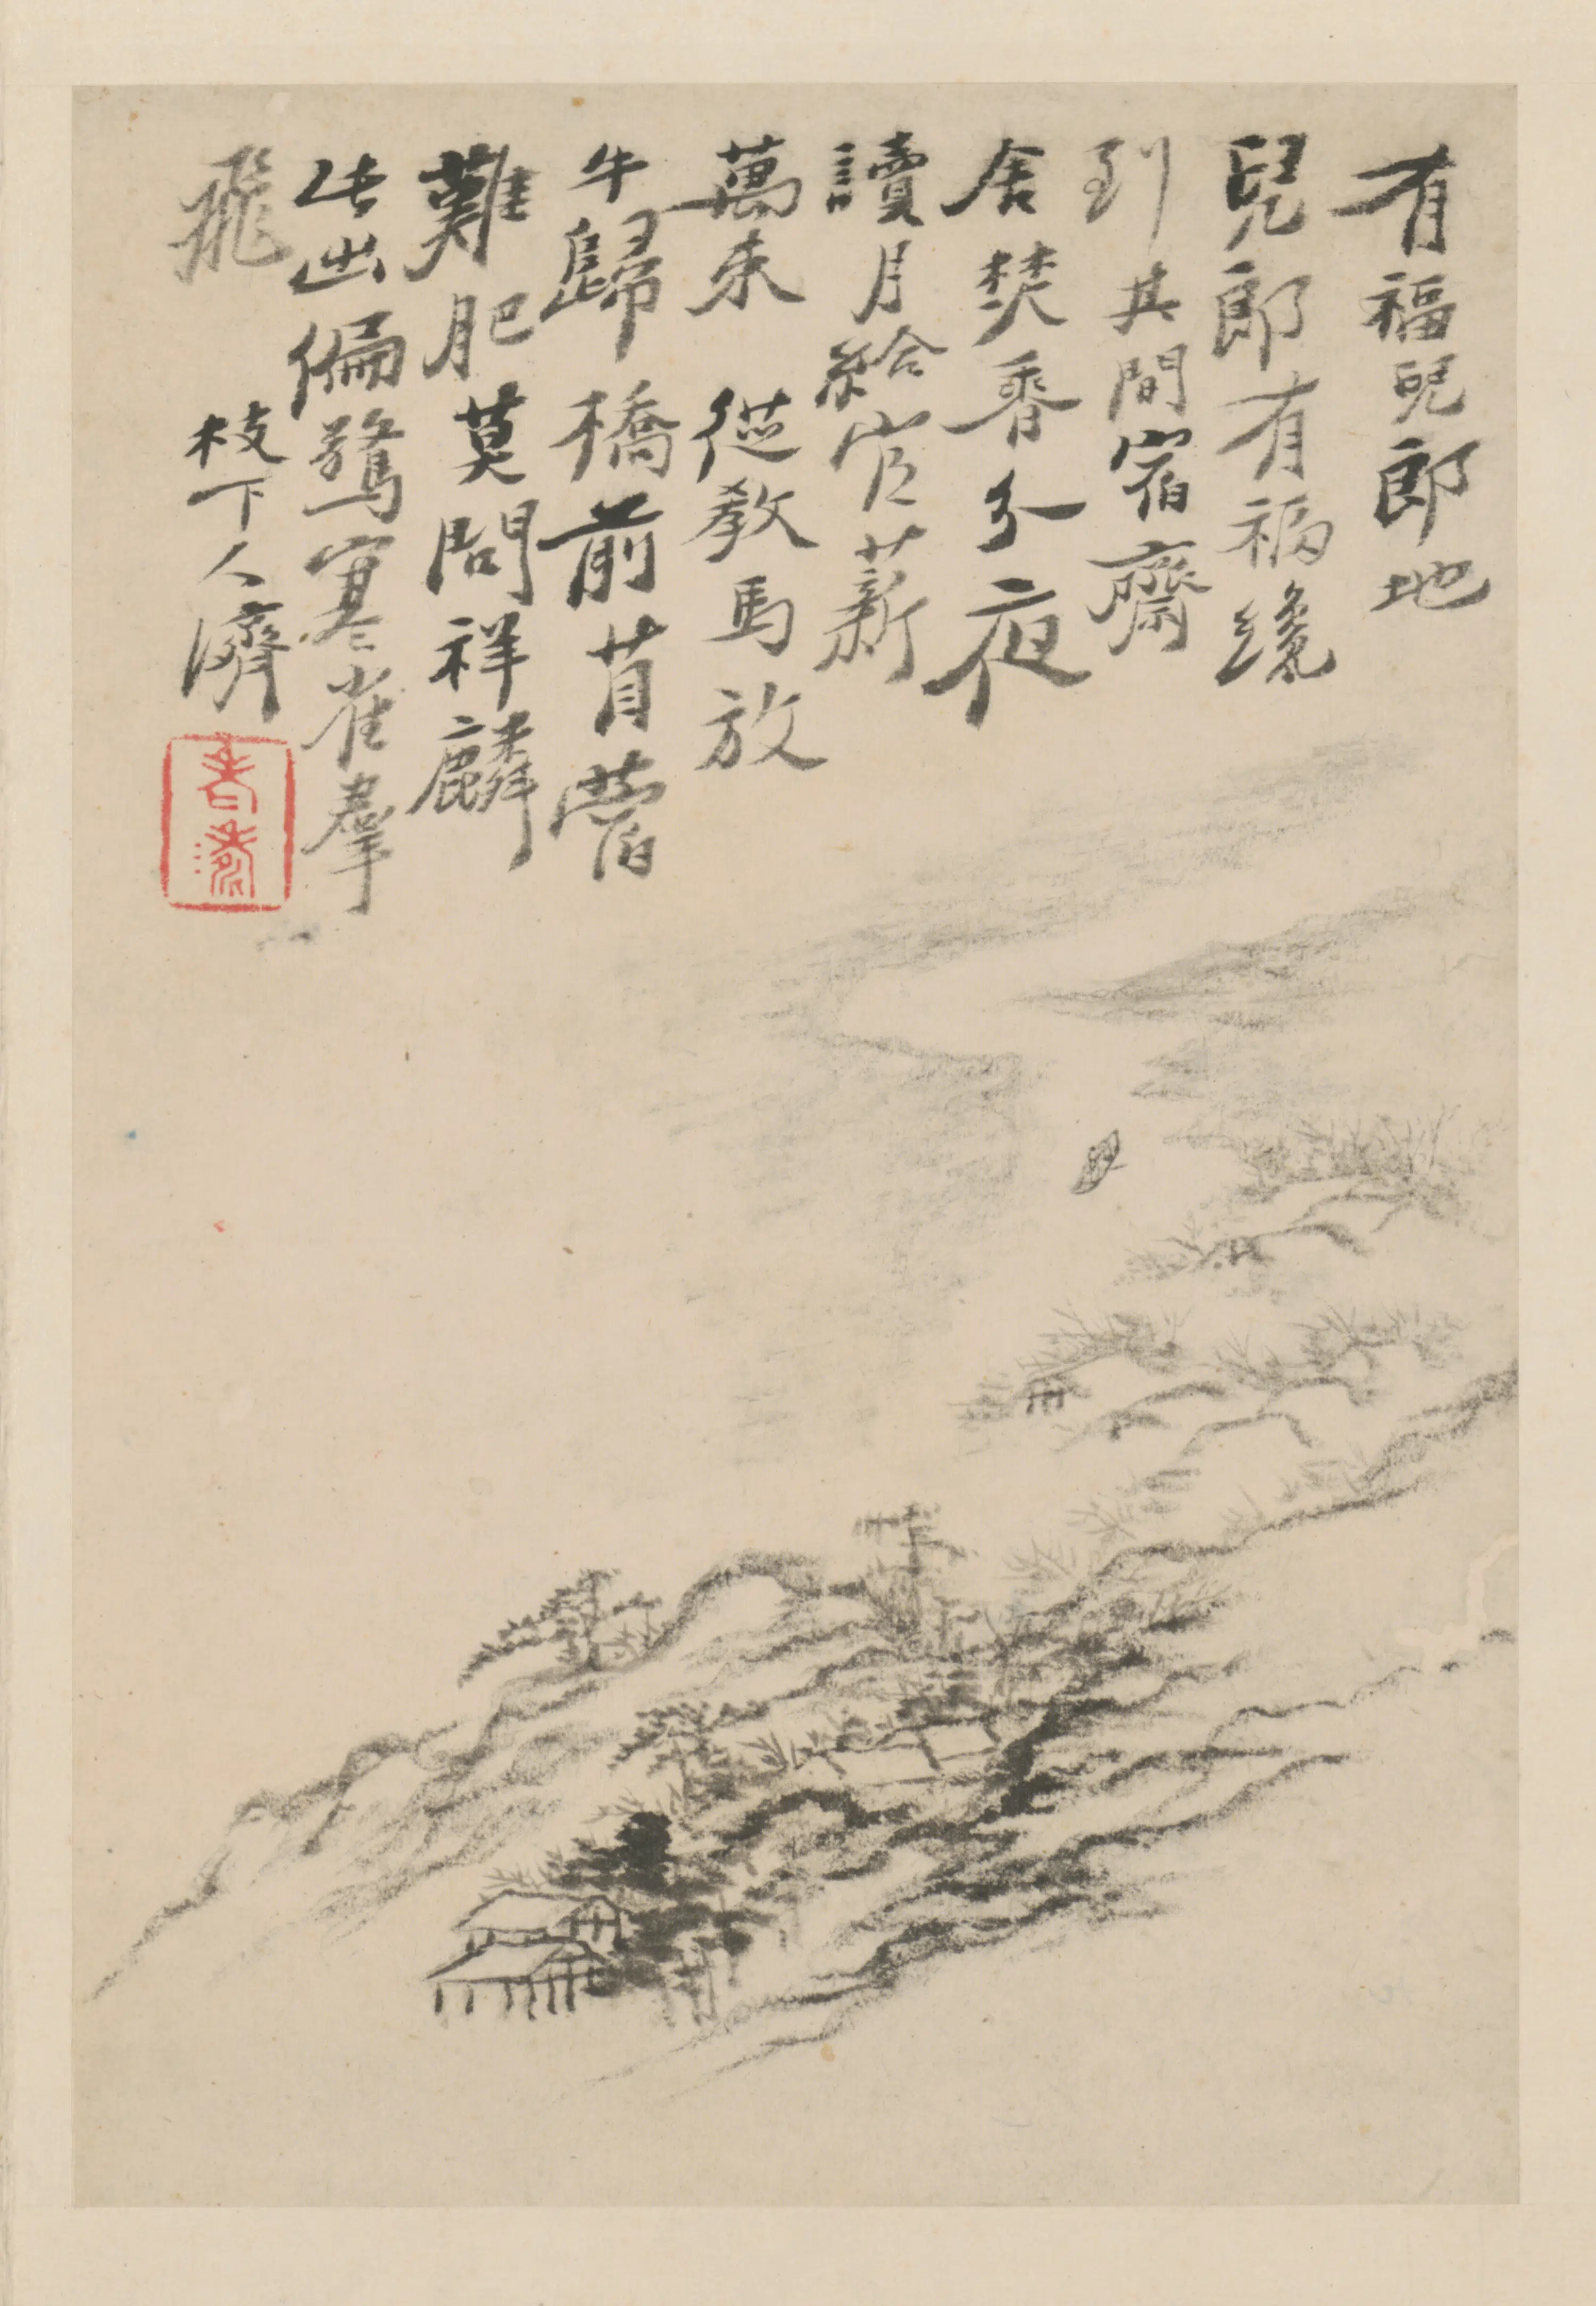 有福兒郎地
兒郎有福纔
到其間宿齋
舍焚香分夜
讀月給官薪
萬束從教馬放
牛歸橋前苜蓿
難肥莫問祥麟
此出偏驚寒雀羣
飛
枝下人濟